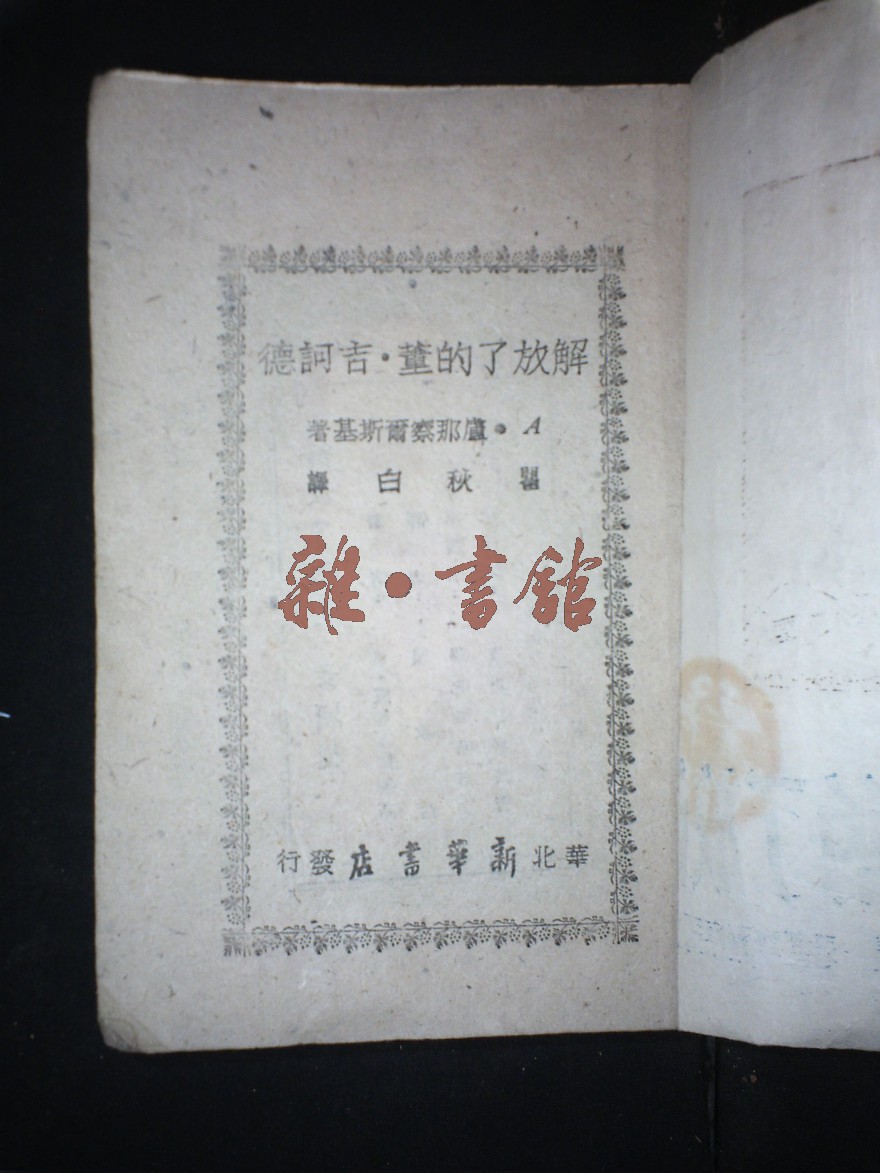 解放了的董·吉訶德
A·盧那察爾斯基著
瞿秋白譯
雜·書館
華北新華書店發行